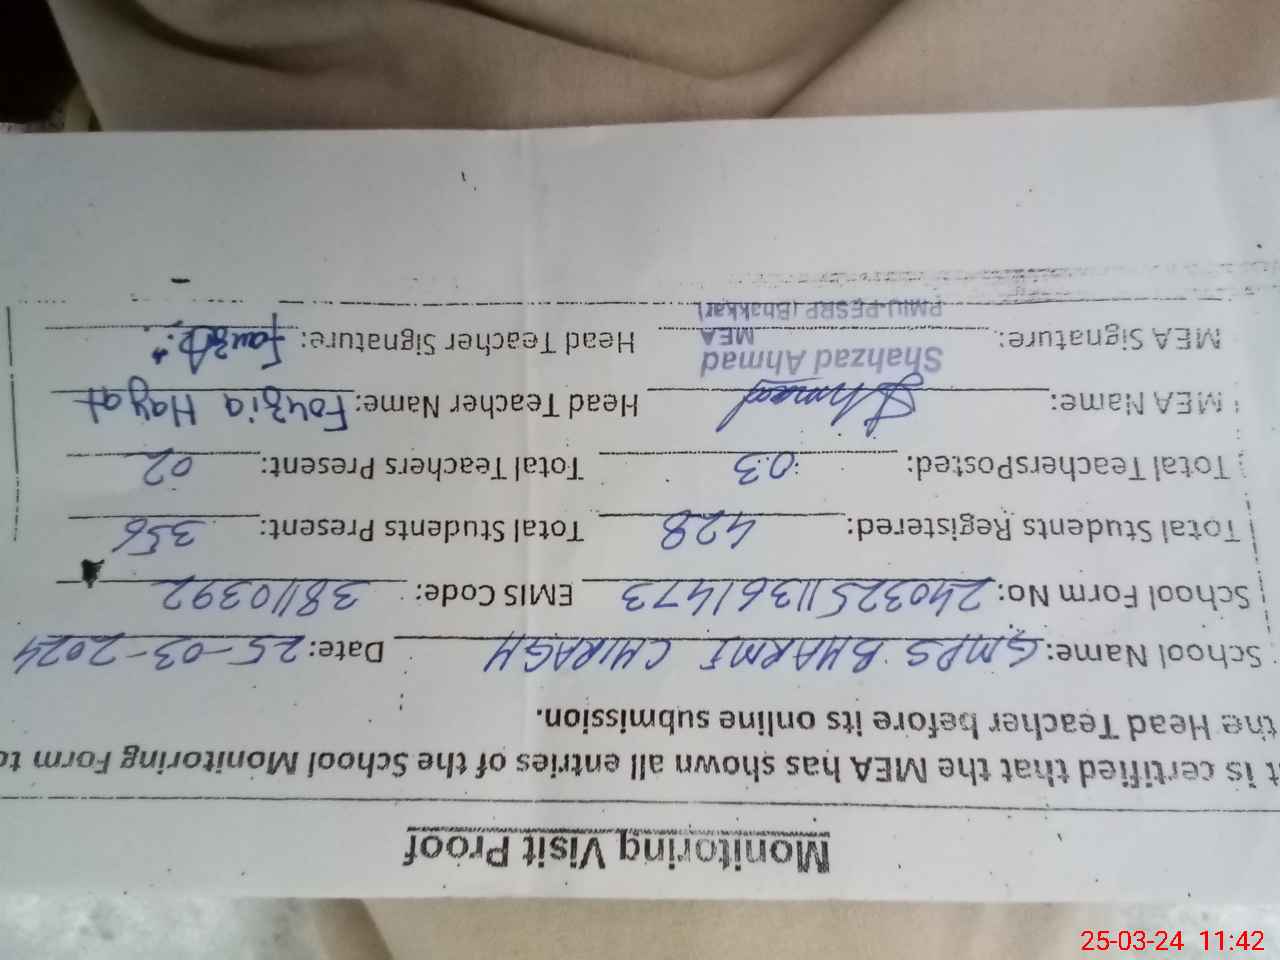 Monitoring Visit Proof
It is certified that the MEA has shown all entries of the School Monitoring Form to
the Head Teacher before its online submission.
School Name: GMPS BHARMI CHIRAGH Date: 25-03-2024
School Form No: 24032511361473 EMIS Code: 38110392
Total Students Registered: 428 Total Students Present: 356
Total TeachersPosted: 03 Total Teachers Present: 02
MEA Name: Ahmad Head Teacher Name: Fouzia Hayat
Shahzad Ahmad
MEA Signature: MEA Head Teacher Signature:
PMIU-PESRP (Bhakkar)
25-03-24 11:42